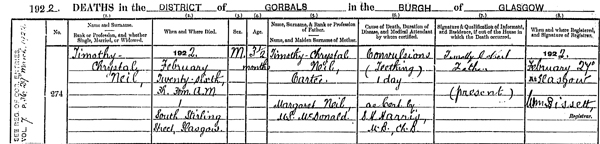 1922. DEATHS in the DISTRICT of GORBALS in the BURGH of GLASGOW
(1.) (2.) (3.) (4.) (5.) (6.) (7.) (8.)
No.
Name and Surname.
Rank or Profession, and whether Single, Married, or Widowed.
When and Where Died.
Sex.
Age.
Name, Surname, & Rank or Profession of Father.
Name, and Maiden Surname of Mother.
Cause of Death, Duration of Disease, and Medical Attendant by whom certified.
Signature & Qualification of Informant, and Residence, if out of the House in which the Death occurred.
When and where Registered, and Signature of Registrar.
274
Timothy-
Chrystal
Neil,
1922.
February
Twenty-sixth,
A.M.
South Stirling
Street, Glasgow.
M.
3½
months
Timothy-Chrystal
Neil,
Carter
Margaret Neil,
M.S. McDonald.
Convulsions
(Teething)
1 day
as Cert by
Harris,
M.B. Ch.B.
Timothy C. Neil
Father
(present)
1922.
February 27
at Glasgow
Wm Bissett
Registrar.
SEE REG. OF COR. ENTRIES
VOL. 7 March, 1922.